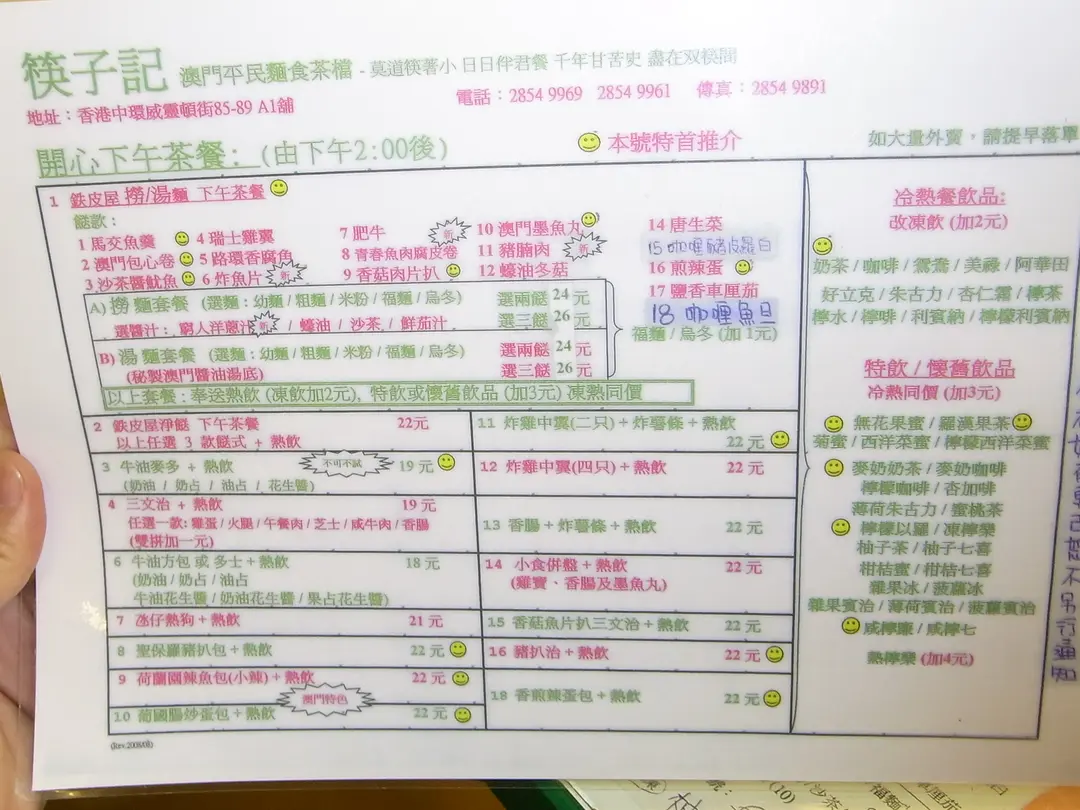 筷子記 澳門平民麵食茶檔 - 莫道筷箸小 日日伴君餐 千年甘苦史 盡在双筷間
地址：香港中環威靈頓街85-89 A1舖
電話：2854 9969 2854 9961 傳真：2854 9891
開心下午茶餐：(由下午2:00後)
本號特首推介
如大量外賣，請提早落單
1 鉄皮屋 撈/湯麵 下午茶餐
餸款：
1 馬交魚羹
2 澳門包心卷
3 沙茶醬魷魚
4 瑞士雞翼
5 路環香腐魚
6 炸魚片 新
7 肥牛 新
8 青春魚肉腐皮卷
9 香菇肉片扒
10 澳門墨魚丸
11 豬腩肉 新
12 蠔油冬菇
14 唐生菜
15 咖喱豬皮蘿白
16 煎辣蛋
17 鹽香車厘茄
18 咖喱魚旦
福麵 / 烏冬 (加 1元)
A) 撈 麵套餐 (選麵：幼麵 / 粗麵 / 米粉 / 福麵 / 烏冬) 選兩餸 24 元
選醬汁：窮人洋蔥汁 新 / 蠔油 / 沙茶 / 鮮茄汁 選三餸 26 元
B) 湯 麵套餐 (選麵：幼麵 / 粗麵 / 米粉 / 福麵 / 烏冬) 選兩餸 24 元
(秘製澳門醬油湯底) 選三餸 26 元
以上套餐：奉送熱飲 (凍飲加2元), 特飲或懷舊飲品 (加3元) 凍熱同價
2 鉄皮屋淨餸 下午茶餐 22元
以上任選 3 款餸式 + 熱飲
3 牛油麥多 + 熱飲 不可不試 19 元
(奶油 / 奶占 / 油占 / 花生醬)
4 三文治 + 熱飲 19 元
任選一款: 雞蛋 / 火腿 / 午餐肉 / 芝士 / 咸牛肉 / 香腸
(雙拼加一元)
6 牛油方包 或 多士 + 熱飲 18 元
(奶油 / 奶占 / 油占
牛油花生醬 / 奶油花生醬 / 果占花生醬)
7 氹仔熱狗 + 熱飲 21 元
8 聖保羅豬扒包 + 熱飲 22 元
9 荷蘭園辣魚包(小辣) + 熱飲 22 元
澳門特色
10 葡國腸炒蛋包 + 熱飲 22 元
11 炸雞中翼(二只) + 炸薯條 + 熱飲
22 元
12 炸雞中翼(四只) + 熱飲 22 元
13 香腸 + 炸薯條 + 熱飲 22 元
14 小食併盤 + 熱飲 22 元
(雞寶、香腸及墨魚丸)
15 香菇魚片扒三文治 + 熱飲 22 元
16 豬扒治 + 熱飲 22 元
18 香煎辣蛋包 + 熱飲 22 元
冷熱餐飲品:
改凍飲 (加2元)
奶茶 / 咖啡 / 鴛鴦 / 美祿 / 阿華田
好立克 / 朱古力 / 杏仁霜 / 檸茶
檸水 / 檸啡 / 利賓納 / 檸檬利賓納
特飲 / 懷舊飲品
冷熱同價 (加3元)
無花果蜜 / 羅漢果茶
菊蜜 / 西洋菜蜜 / 檸檬西洋菜蜜
麥奶奶茶 / 麥奶咖啡
檸檬咖啡 / 杏加啡
薄荷朱古力 / 蜜桃茶
檸檬以羅 / 凍檸樂
柚子茶 / 柚子七喜
柑桔蜜 / 柑桔七喜
雜果冰 / 菠蘿冰
雜果賓治 / 薄荷賓治 / 菠蘿賓治
咸檸廉 / 咸檸七
熱檸樂 (加4元)
(Rev.2008/08)